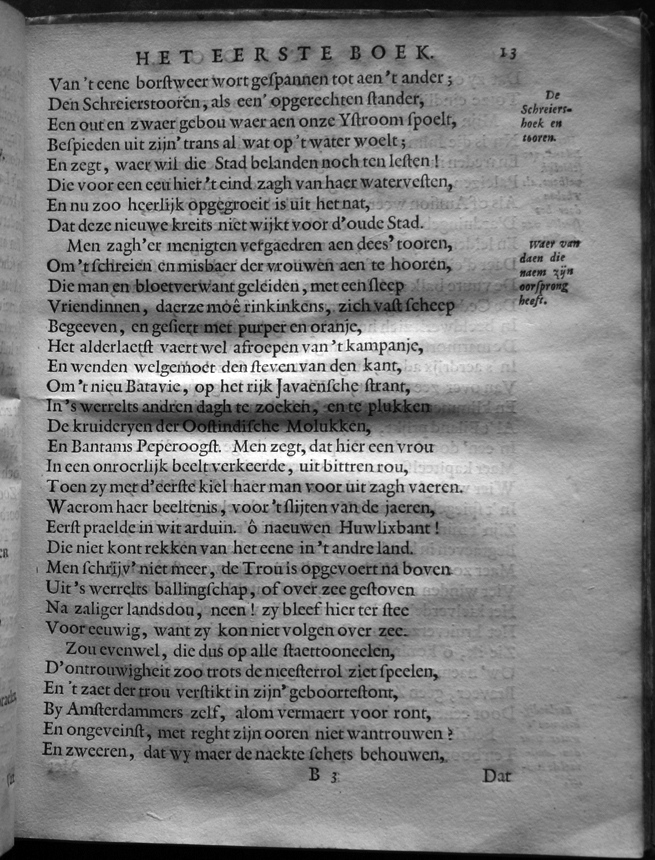 HET EERSTE BOEK. 13
Van 't eene borſtweer wort geſpannen tot aen 't ander;
Den Schreierstooren, als een' opgerechten ſtander,
Een out en zwaer gebou waer aen onze Yſtroom ſpoelt,
Beſpieden uit zijn' trans al wat op 't water woelt;
En zegt, waer wil die Stad belanden noch ten leſten!
Die voor een eeu hier 't eind zagh van haer waterveſten,
En nu zoo heerlijk opgegroeit is uit het nat,
Dat deze nieuwe kreits niet wijkt voor d'oude Stad.
De
Schreiers-
hoek en
tooren.
Men zagh'er menigten vergaedren aen dees' tooren,
Om 't ſchreien en misbaer der vrouwen aen te hooren,
Die man en bloetverwant geleiden, met een ſleep
Vriendinnen, daerze móê rinkinkens, zich vaſt ſcheep
Begeeven, en geſiert met purper en oranje,
Het alderlaetſt vaert wel afroepen van 't kampanje,
En wenden welgemoet den ſteven van den kant,
Om 't nieu Batavie, op het rijk Javaënſche ſtrant,
In 's werrelts andren dagh te zoeken, en te plukken
De kruideryen der Ooſtindiſche Molukken,
En Bantams Peperoogſt. Men zegt, dat hier een vrou
In een onroerlijk beelt verkeerde, uit bittren rou,
Toen zy met d'eerſte kiel haer man voor uit zagh vaeren.
Waerom haer beeltenis, voor 't ſlijten van de jaeren,
Eerſt praelde in wit arduin. ô naeuwen Huwlixbant!
Die niet kont rekken van het eene in 't andre land.
Men ſchrijv' niet meer, de Trou is opgevoert na boven
Uit 's werrelts ballingſchap, of over zee geſtoven
Na zaliger landsdou, neen! zy bleef hier ter ſtee
Voor eeuwig, want zy kon niet volgen over zee.
Waer van
daen die
naem zijn
oorſprong
heeft.
Zou evenwel, die dus op alle ſtaettooneelen,
D'ontrouwigheit zoo trots de meeſterrol ziet ſpeelen,
En 't zaet der trou verſtikt in zijn' geborteſtont,
By Amſterdammers zelf, alom vermaert voor ront,
En ongeveinſt, met reght zijn ooren niet wantrouwen?
En zweeren, dat wy maer de naekte ſchets behouwen,
B 3 Dat